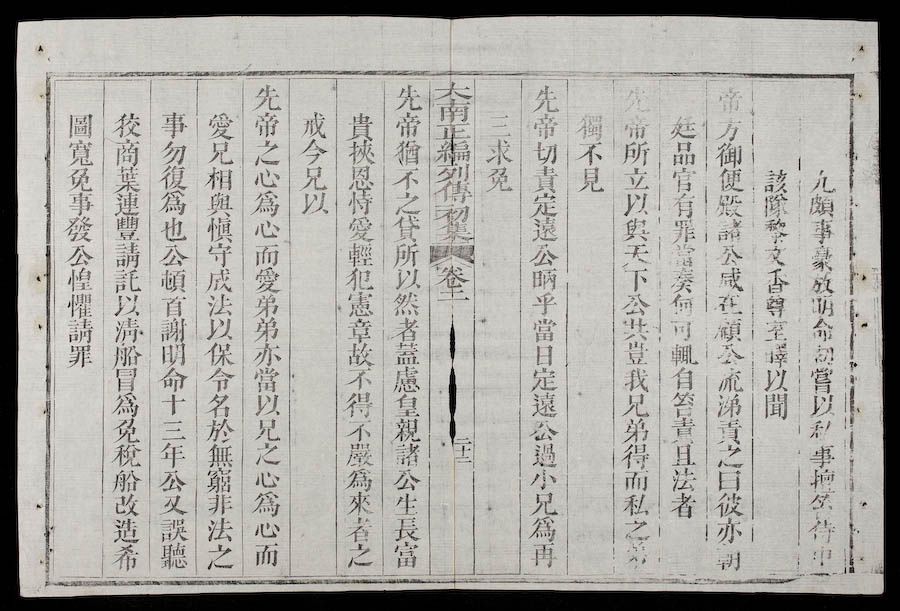 九頗事豪放明命初嘗以私事擅笞侍中
該隊黎文香尊室曄以聞
帝方御便殿諸公咸在顧公流涕責之曰彼亦朝
廷品官有罪當奏何可輒自笞責且法者
先帝所立以與天下公共豈我兄弟得而私之弟
獨不見
先帝切責定遠公昞乎當日定遠公過小兄爲再
三求免
大南正編列傳初集 卷二 二十二
先帝猶不之貸所以然者蓋慮皇親諸公生長富
貴挾恩恃愛輕犯憲章故不得不嚴爲來者之
戒今兄以
先帝之心爲心而愛弟弟亦當以兄之心爲心而
愛兄相與愼守成法以保令名於無窮非法之
事勿復爲也公頓首謝明命十三年公又誤聽
狡商葉連豐請託以淸船冒爲免稅船改造希
圖寬免事發公惶懼請罪